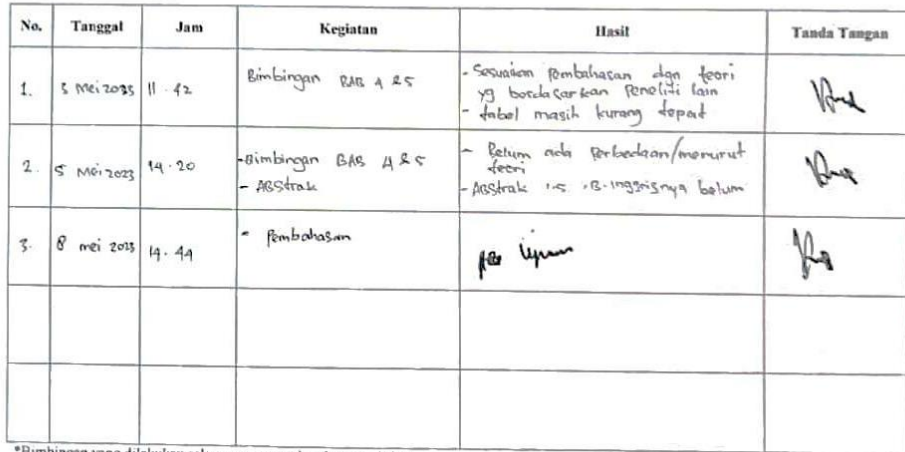 No. Tanggal Jam Kegiatan Hasil Tanda Tangan
1. 3 Mei 2023 11.42 Bimbingan BAB 4 & 5 - Sesuaikan Pembahasan dgn teori
yg berdasarkan Peneliti lain
- tabel masih kurang tepat
2. 5 Mei 2023 14.20 - Bimbingan BAB 4 & 5 - Belum ada Perbedaan/menurut
teori
- ABStrak - ABStrak B.inggrisnya belum
3. 8 mei 2023 14.44 - Pembahasan
*Bimbingan yang dilakukan